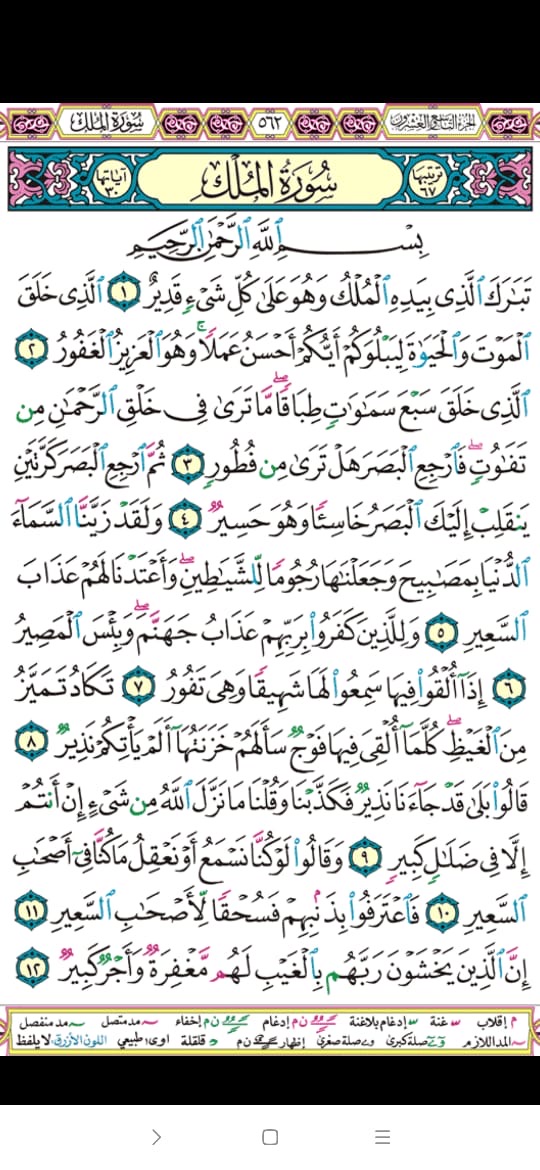 سُورَةُ الْمُلْكِ ٥٦٢ الجزء التاسع والعشرون
آياتها ٣٠ سُورَةُ الْمُلْكِ ترتيبها ٦٧
بِسْمِ ٱللَّهِ ٱلرَّحْمَٰنِ ٱلرَّحِيمِ
تَبَٰرَكَ ٱلَّذِى بِيَدِهِ ٱلْمُلْكُ وَهُوَ عَلَىٰ كُلِّ شَىْءٍ قَدِيرٌ ١ ٱلَّذِى خَلَقَ
ٱلْمَوْتَ وَٱلْحَيَوٰةَ لِيَبْلُوَكُمْ أَيُّكُمْ أَحْسَنُ عَمَلًا ۚ وَهُوَ ٱلْعَزِيزُ ٱلْغَفُورُ ٢
ٱلَّذِى خَلَقَ سَبْعَ سَمَٰوَٰتٍ طِبَاقًا ۖ مَّا تَرَىٰ فِى خَلْقِ ٱلرَّحْمَٰنِ مِن
تَفَٰوُتٍ ۖ فَٱرْجِعِ ٱلْبَصَرَ هَلْ تَرَىٰ مِن فُطُورٍ ٣ ثُمَّ ٱرْجِعِ ٱلْبَصَرَ كَرَّتَيْنِ
يَنقَلِبْ إِلَيْكَ ٱلْبَصَرُ خَاسِئًا وَهُوَ حَسِيرٌ ٤ وَلَقَدْ زَيَّنَّا ٱلسَّمَآءَ
ٱلدُّنْيَا بِمَصَٰبِيحَ وَجَعَلْنَٰهَا رُجُومًا لِّلشَّيَٰطِينِ ۖ وَأَعْتَدْنَا لَهُمْ عَذَابَ
ٱلسَّعِيرِ ٥ وَلِلَّذِينَ كَفَرُوا۟ بِرَبِّهِمْ عَذَابُ جَهَنَّمَ ۖ وَبِئْسَ ٱلْمَصِيرُ
٦ إِذَآ أُلْقُوا۟ فِيهَا سَمِعُوا۟ لَهَا شَهِيقًا وَهِىَ تَفُورُ ٧ تَكَادُ تَمَيَّزُ
مِنَ ٱلْغَيْظِ ۖ كُلَّمَآ أُلْقِىَ فِيهَا فَوْجٌ سَأَلَهُمْ خَزَنَتُهَآ أَلَمْ يَأْتِكُمْ نَذِيرٌ ٨
قَالُوا۟ بَلَىٰ قَدْ جَآءَنَا نَذِيرٌ فَكَذَّبْنَا وَقُلْنَا مَا نَزَّلَ ٱللَّهُ مِن شَىْءٍ إِنْ أَنتُمْ
إِلَّا فِى ضَلَٰلٍ كَبِيرٍ ٩ وَقَالُوا۟ لَوْ كُنَّا نَسْمَعُ أَوْ نَعْقِلُ مَا كُنَّا فِىٓ أَصْحَٰبِ
ٱلسَّعِيرِ ١٠ فَٱعْتَرَفُوا۟ بِذَنۢبِهِمْ فَسُحْقًا لِّأَصْحَٰبِ ٱلسَّعِيرِ ١١
إِنَّ ٱلَّذِينَ يَخْشَوْنَ رَبَّهُم بِٱلْغَيْبِ لَهُم مَّغْفِرَةٌ وَأَجْرٌ كَبِيرٌ ١٢
م إقلاب غنة إدغام بلاغنة ن م إدغام ن م إخفاء مد متصل مد منفصل
المد اللازم صلة كبرى صلة صغرى إظهار ن م قلقلة اوى طبيعي اللون الأزرق: لا يلفظ